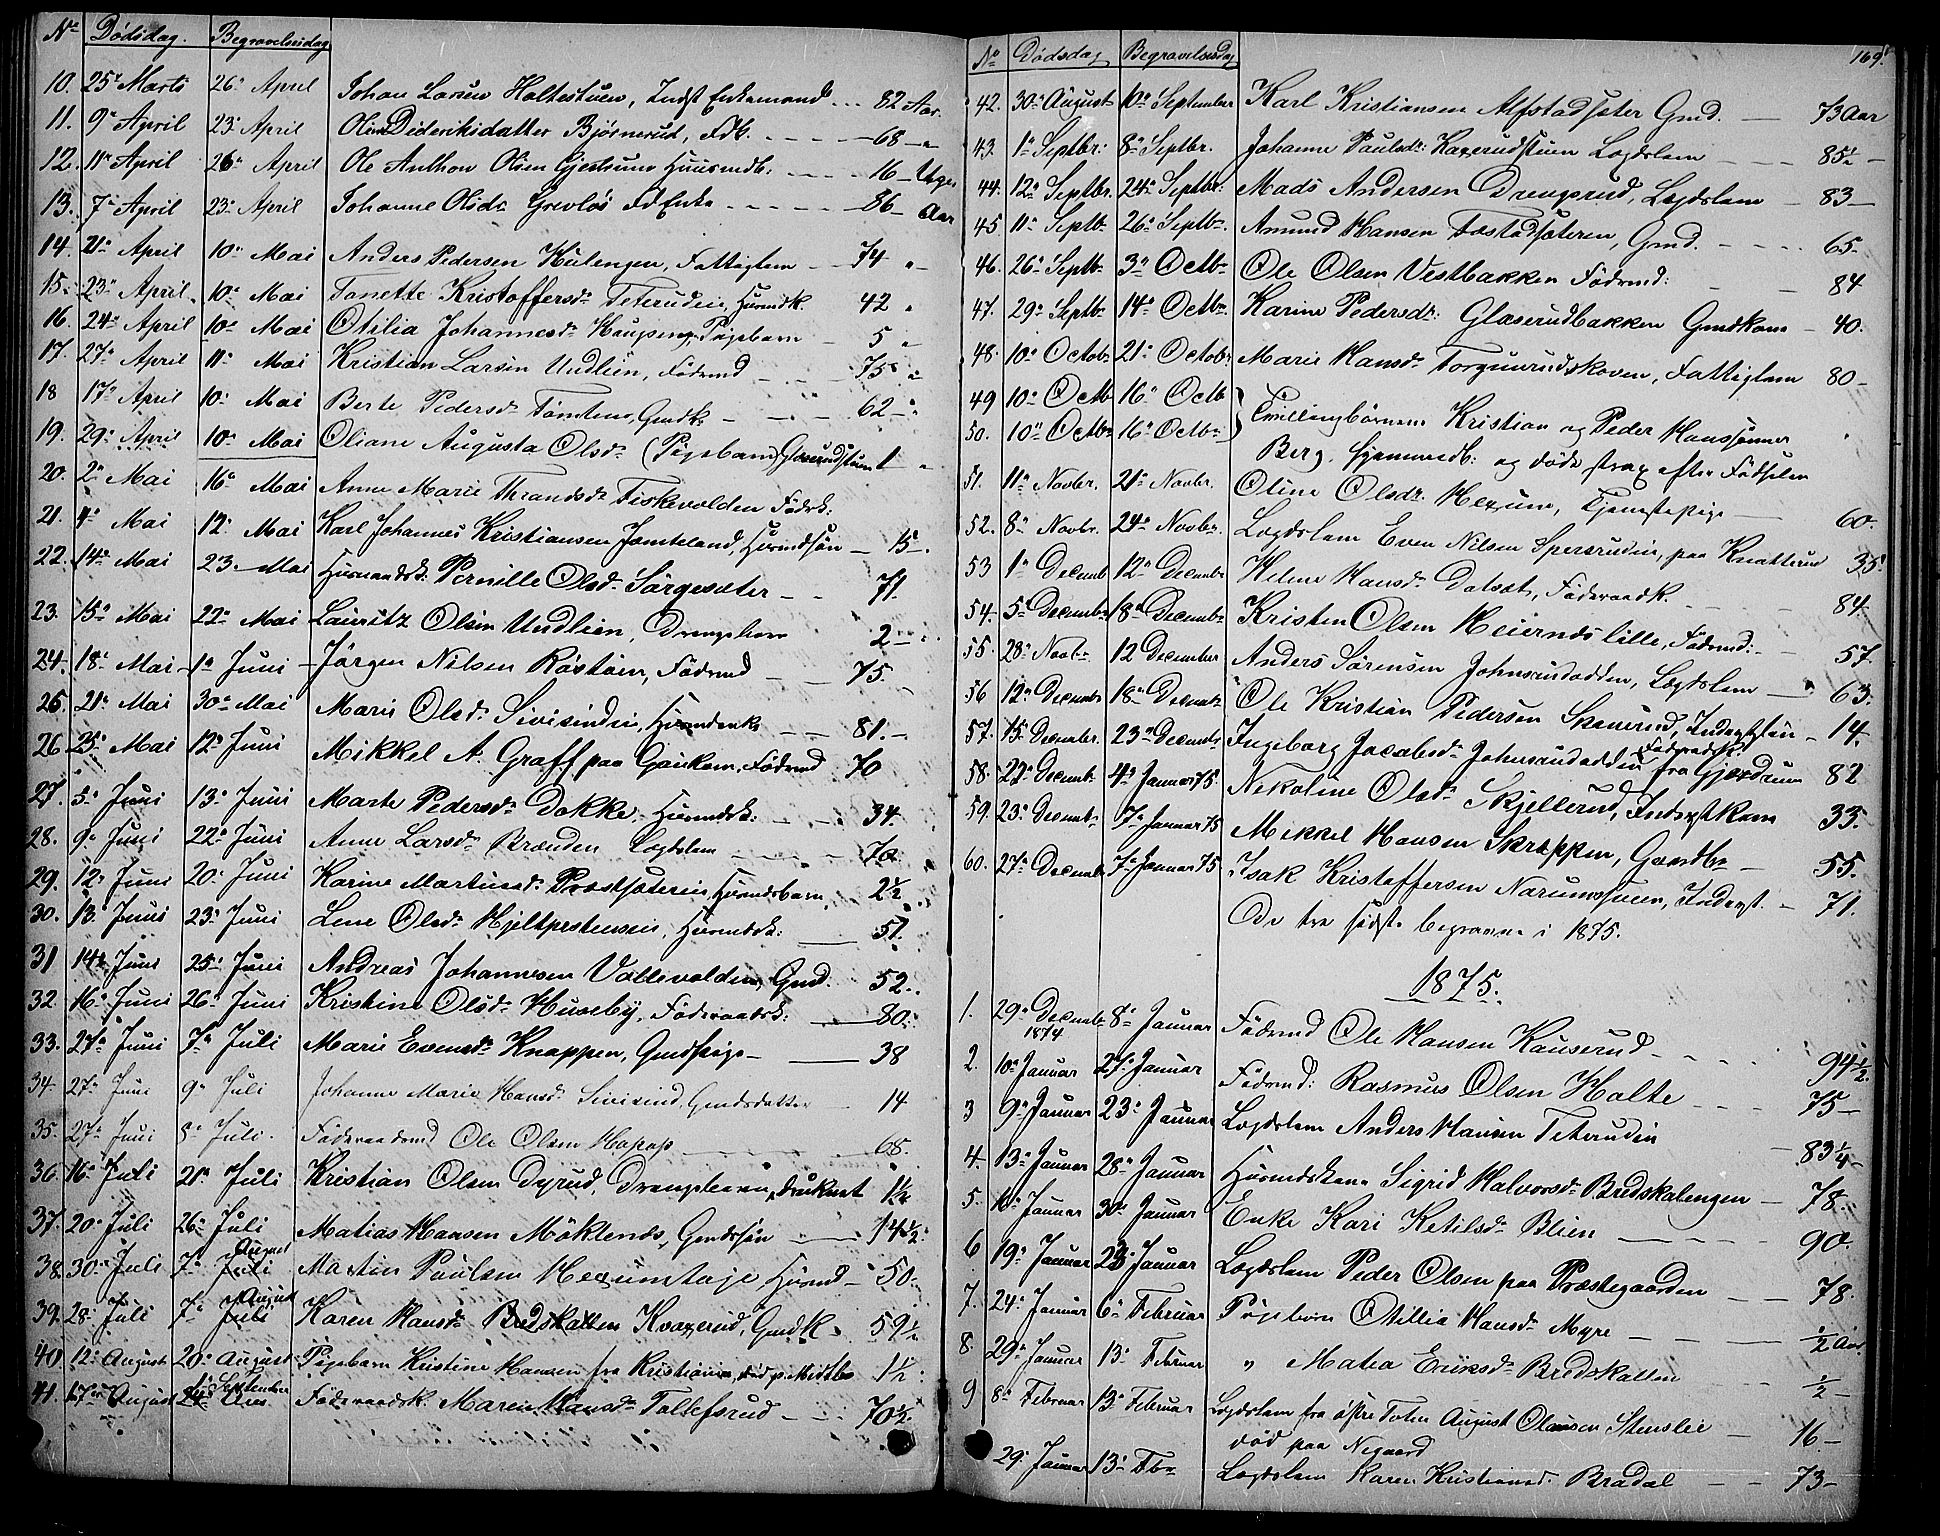 No Dødsdag. Begravelsesdag
10. 25 Marts 26 April Johan Larsen Holtestuen, Indst Enkemand ... 82 Aar.
11. 9 April 23 April Oline Dideriksdatter Bjørnerud, Fdk. 68 "
12. 11 April 26 April Ole Anthon Olsen Gjertsrud Huusmdb. 16 Uger
13. 7 April 23 April Johanne Olsdr Grevløs Fd Enke 86 Aar
14. 21 April 10 Mai Anders Pedersen Hulengen, Fattiglem 74 "
15. 23 April 10 Mai Tonette Kristoffersdr Teterudeie, Husmdk. 42 "
16. 24 April 10 Mai Otilia Johannesdr Haugseng Pigebarn 5 "
17. 27 April 11 Mai Kristian Larsen Undlien, Födrmd 75 "
18 17 April 10 Mai Berte Pedersdr Tömten, Gmdk 62 "
19. 29 April 10 Mai Oliane Augusta Olsdr (Pigebarn) Glæserudstuen 1 "
20. 2 Mai 16 Mai Anne Marie Thrandsdr Fiskevolden Födrk:
21. 4 Mai 12 Mai Karl Johannes Kristiansen Jemteland, Husmdsön 15.
22. 14 Mai 23 Mai Husmandsk: Pernille Olsdr Sörgesæter 71.
23. 15 Mai 22 Mai Lauritz Olsen Undlien, Drengebarn 2
24. 18 Mai 1 Juni Jørgen Nilsen Röstöen, Födrmd 75
25. 21 Mai 30 Mai Marie Olsdr Sivesindeie, Husmdenke 81.
26 25 Mai 12 Juni Mikkel A. Graff paa Gaukom, Födrmd 70
27. 5 Juni 13 Juni Marte Pedersdr Dokke, Husmdsk: 34.
28. 9 Juni 22 Juni Anne Larsdr Brænden Lægdslem 70
29. 12 Juni 20 Juni Karine Martinusdr Præstsætereie Husmdsbarn 2½
30. 13 Juni 23 Juni Lene Olsdr Hjeltpestuen, Husmdsk: 51.
31 14 Juni 25 Juni Andreas Johannesen Vallevolden, Gmd. 52.
32 16 Juni 26 Juni Kristine Olsdr Huseby, Föderaadsk: 80.
33. 27 Juni 7 Juli Marie Evensdr Knappen, Gmdspige 38
34. 27 Juni 9 Juli Johanne Marie Hansdr Sivesind, Gmdsdatter 14
35. 27 Juni 8 Juli. Föderaadsmd Ole Olsen 68.
36. 16 Juli 21 Juli Kristian Olsen Dyrud, Drengebarn, druknet 1½
37. 20 Juli 26 Juli Matias Hansen Möklends, Gmdssön 14½
38. 30 Juli 7 Juli August Martin Paulsen Hexumhaje Husmd 50.
39. 28 Juli 7 Juli August Karen Hansdr Bredskallen Kvaxerud, Gmdk. 59½
40. 12 August 20 August Pigebarn Kristine Hansen fra Kristiania, död p. Midtbö 1½
41. 17 August 1 September Föderaadsk. Maren Hansdr Tollefsrud 70½.
169.
No Dødsdag Begravelsesdag
42. 30 August 10 September Karl Kristiansen Alfstadsæter Gmd. 73 Aar
43. 1 Septbr. 8 Septbr. Johanne Paulsdr Kaxerudstuen Lægdslem 85½
44. 12 Septbr. 24 Septbr: Mads Andersen Drengsrud, Lægdslem 83
45 11 Septbr 26 Septbr. Amund Hansen Fæstadsæteren, Gmd. 65.
46. 26 Septbr 3 Octbr Ole Olsen Vestbakken Födrmd: 84
47. 29 Septbr 14 Octbr Karine Pedersdr: Glæserudbakken Gmdkone 40.
48. 10 Octobr 21 Octobr Marie Hansdr Torgunrudskoven, Fattiglem 80
49 10 Octb 16 Octb Tvillingbörnene Kristian og Peder Hanssönner
50. 10 Octbr 16 Octbr Berg, hjemmedb. og döde strax efter Födselen
51. 11 Novbr. 21 Novbr. Oline Olsdr. Hexum, Tjenestepige 60.
52. 8 Novbr. 24 Novbr. Lægdslem Even Nilsen Spersrudeie, paa Knatterud 35.
53 1 Decemb 12 Decembr Helene Hansdr Dalsæt, Föderaadk. 84.
54. 5 Decembr 18 Decembr Kristen Olsen Heiernds lille, Födrmd: 57.
55. 28 Novbr 12 December Anders Sørensen Johnsrudodden, Lægdslem 63.
56 12 Decembr 18 Decembr Ole Kristian Pedersen Skaverud, Inderstsön 14.
57. 15 Decembr. 23 Decembr Ingeborg Jacobsdr Johnsrudodden fra Gjerdrum Föderaadsk 82
58. 22 Decembr 4 Januar 75. Nekoline Olsdr Skjellerud, Inderstkone 33.
59. 23 Decembr 7 Januar 75 Mikkel Hansen Skrappen, Gaardbr 55.
60. 27 Decembr 7 Januar 75 Isak Kristoffersen Narumstuen, Inderst. 71.
De tre sidste begravne i 1875.
1875.
1. 29 Decembr 1874 8 Januar Födrmd Ole Hansen Kauserud 94½.
2. 10 Januar 27 Januar Födrmd: Rasmus Olsen Holte 75
3 9 Januar 23 Januar Lægdslem Anders Hansen Teterudeie 83¼
4. 13 Januar 28 Januar Husmdskone Sigrid Halvorsdr Bredskalengen 78.
5. 10 Januar 30 Januar Enke Kari Ketilsdr Blien 90.
6 19 Januar 23 Januar Lægdslem Peder Olsen paa Præstegaarden 78.
7. 24 Januar 6 Februar Pigebarn Otillia Hansdr Myre ½ Aar
8. 29 Januar 13 Februar " Matea Eriksdr Bredskallen ½
9 8 Februar 13 Februar Lægdslem fra østre Toten August Olausen Stenslie 16
död paa Negaard
29 Januar 13 Fbr Lægdslem Karen Kristiansd. Bradal 73